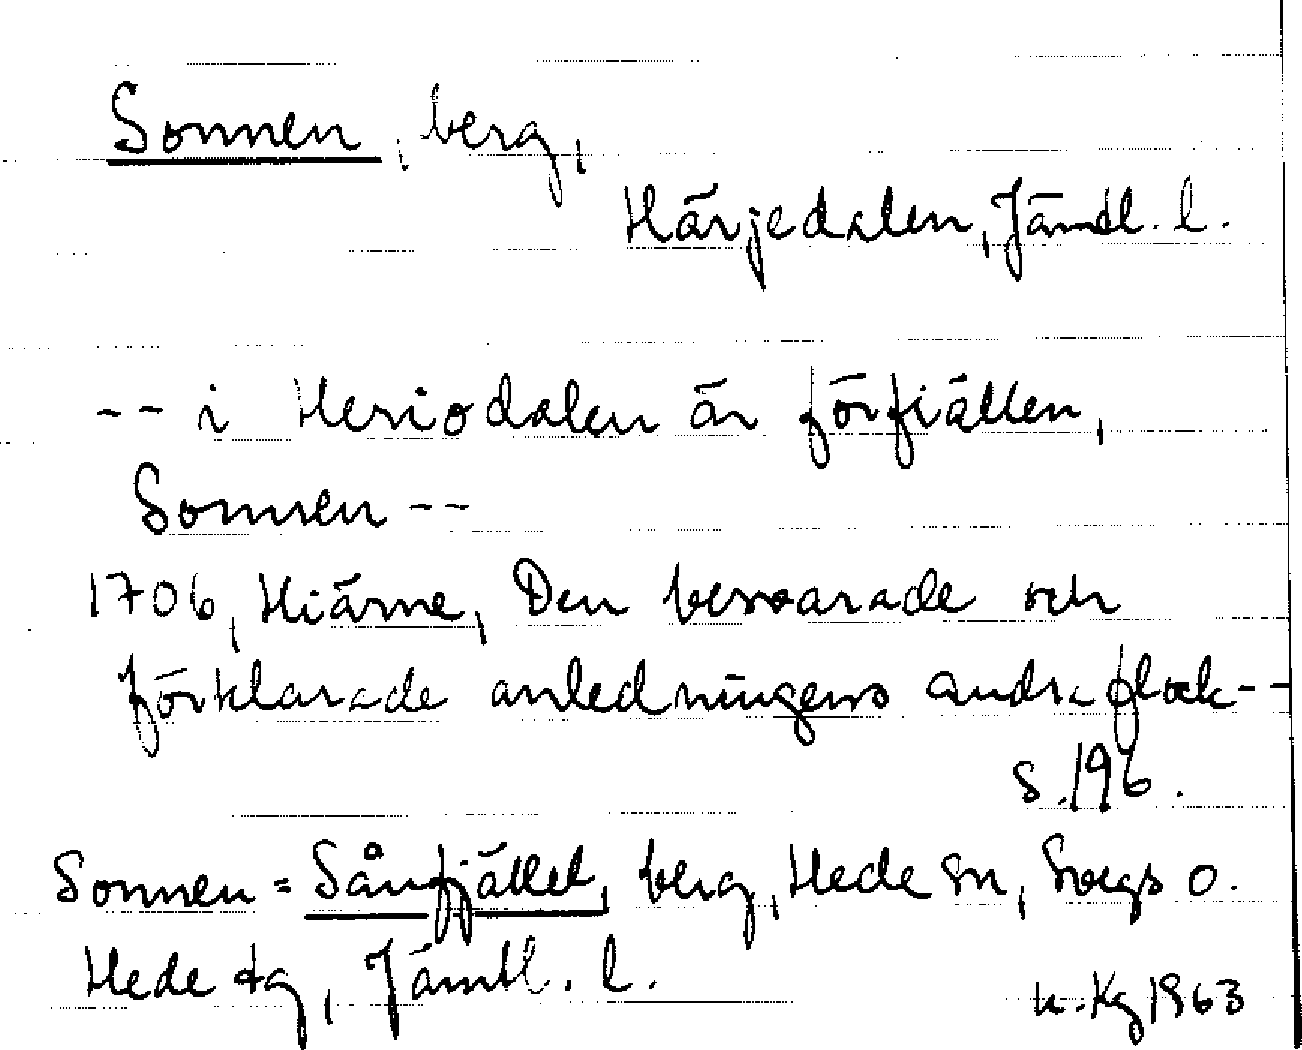 Sonnen, berg,
Härjedalen, Jämtl. l.
-- i Heriodalen är förfiällen,
Sonnen --
1706, Hiärne, Den besvarade och
förklarade anledningens andra flock--
s. 196.
Sonnen = Sånfjället, berg, Hede sn, Svegs o.
Hede tg, Jämtl. l.
u. Kg 1963